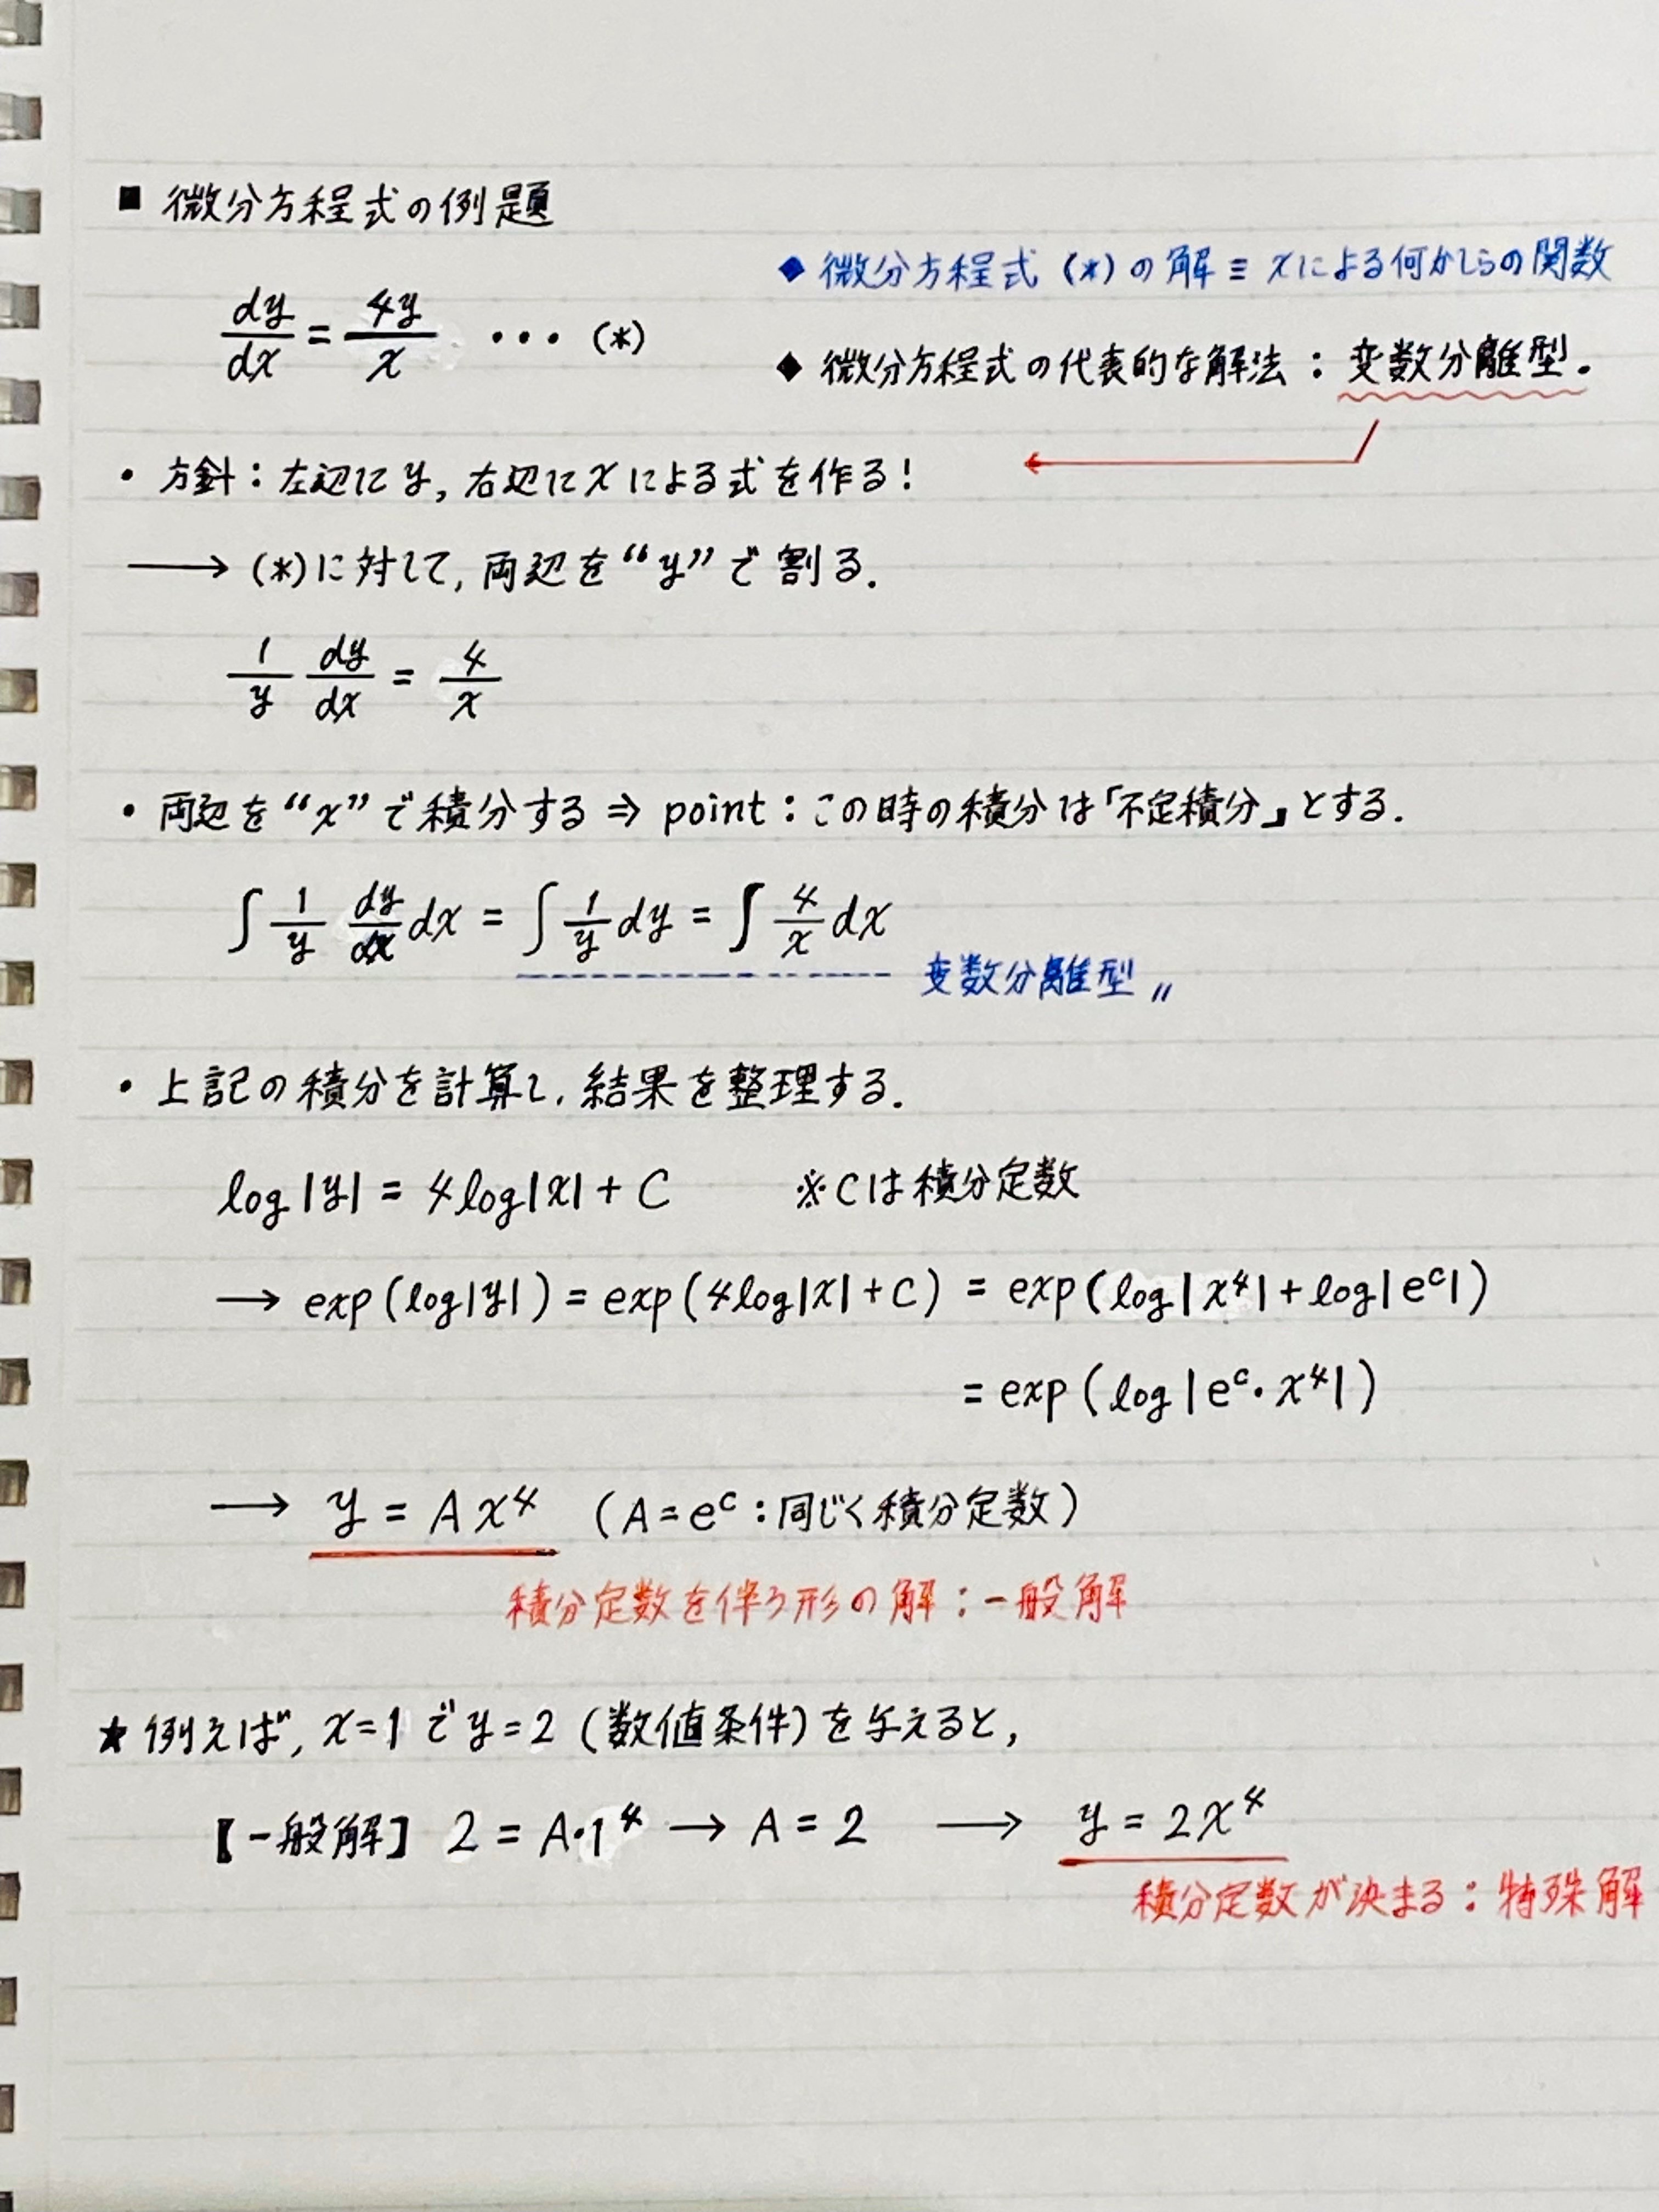 ■ 微分方程式の例題
◆ 微分方程式 (*) の解 ≡ xによる何かしらの関数
dy/dx = 4y/x ・・・ (*)
◆ 微分方程式の代表的な解法 : 変数分離型.
・ 方針 : 左辺に y, 右辺に x による式を作る!
→ (*)に対して, 両辺を “y” で割る.
1/y dy/dx = 4/x
・ 両辺を “x” で積分する ⇒ point : この時の積分は「不定積分」とする.
∫ 1/y dy/dx dx = ∫ 1/y dy = ∫ 4/x dx
変数分離型〃
・ 上記の積分を計算し, 結果を整理する.
log|y| = 4log|x| + C ※Cは積分定数
→ exp(log|y|) = exp(4log|x|+C) = exp(log|x⁴|+log|e^c|)
= exp(log|e^c・x⁴|)
→ y = Ax⁴ (A=e^c : 同じく積分定数)
積分定数を伴う形の解 : 一般解
★ 例えば, x=1 で y=2 (数値条件) を与えると,
【一般解】 2 = A・1⁴ → A = 2 → y = 2x⁴
積分定数が決まる : 特殊解